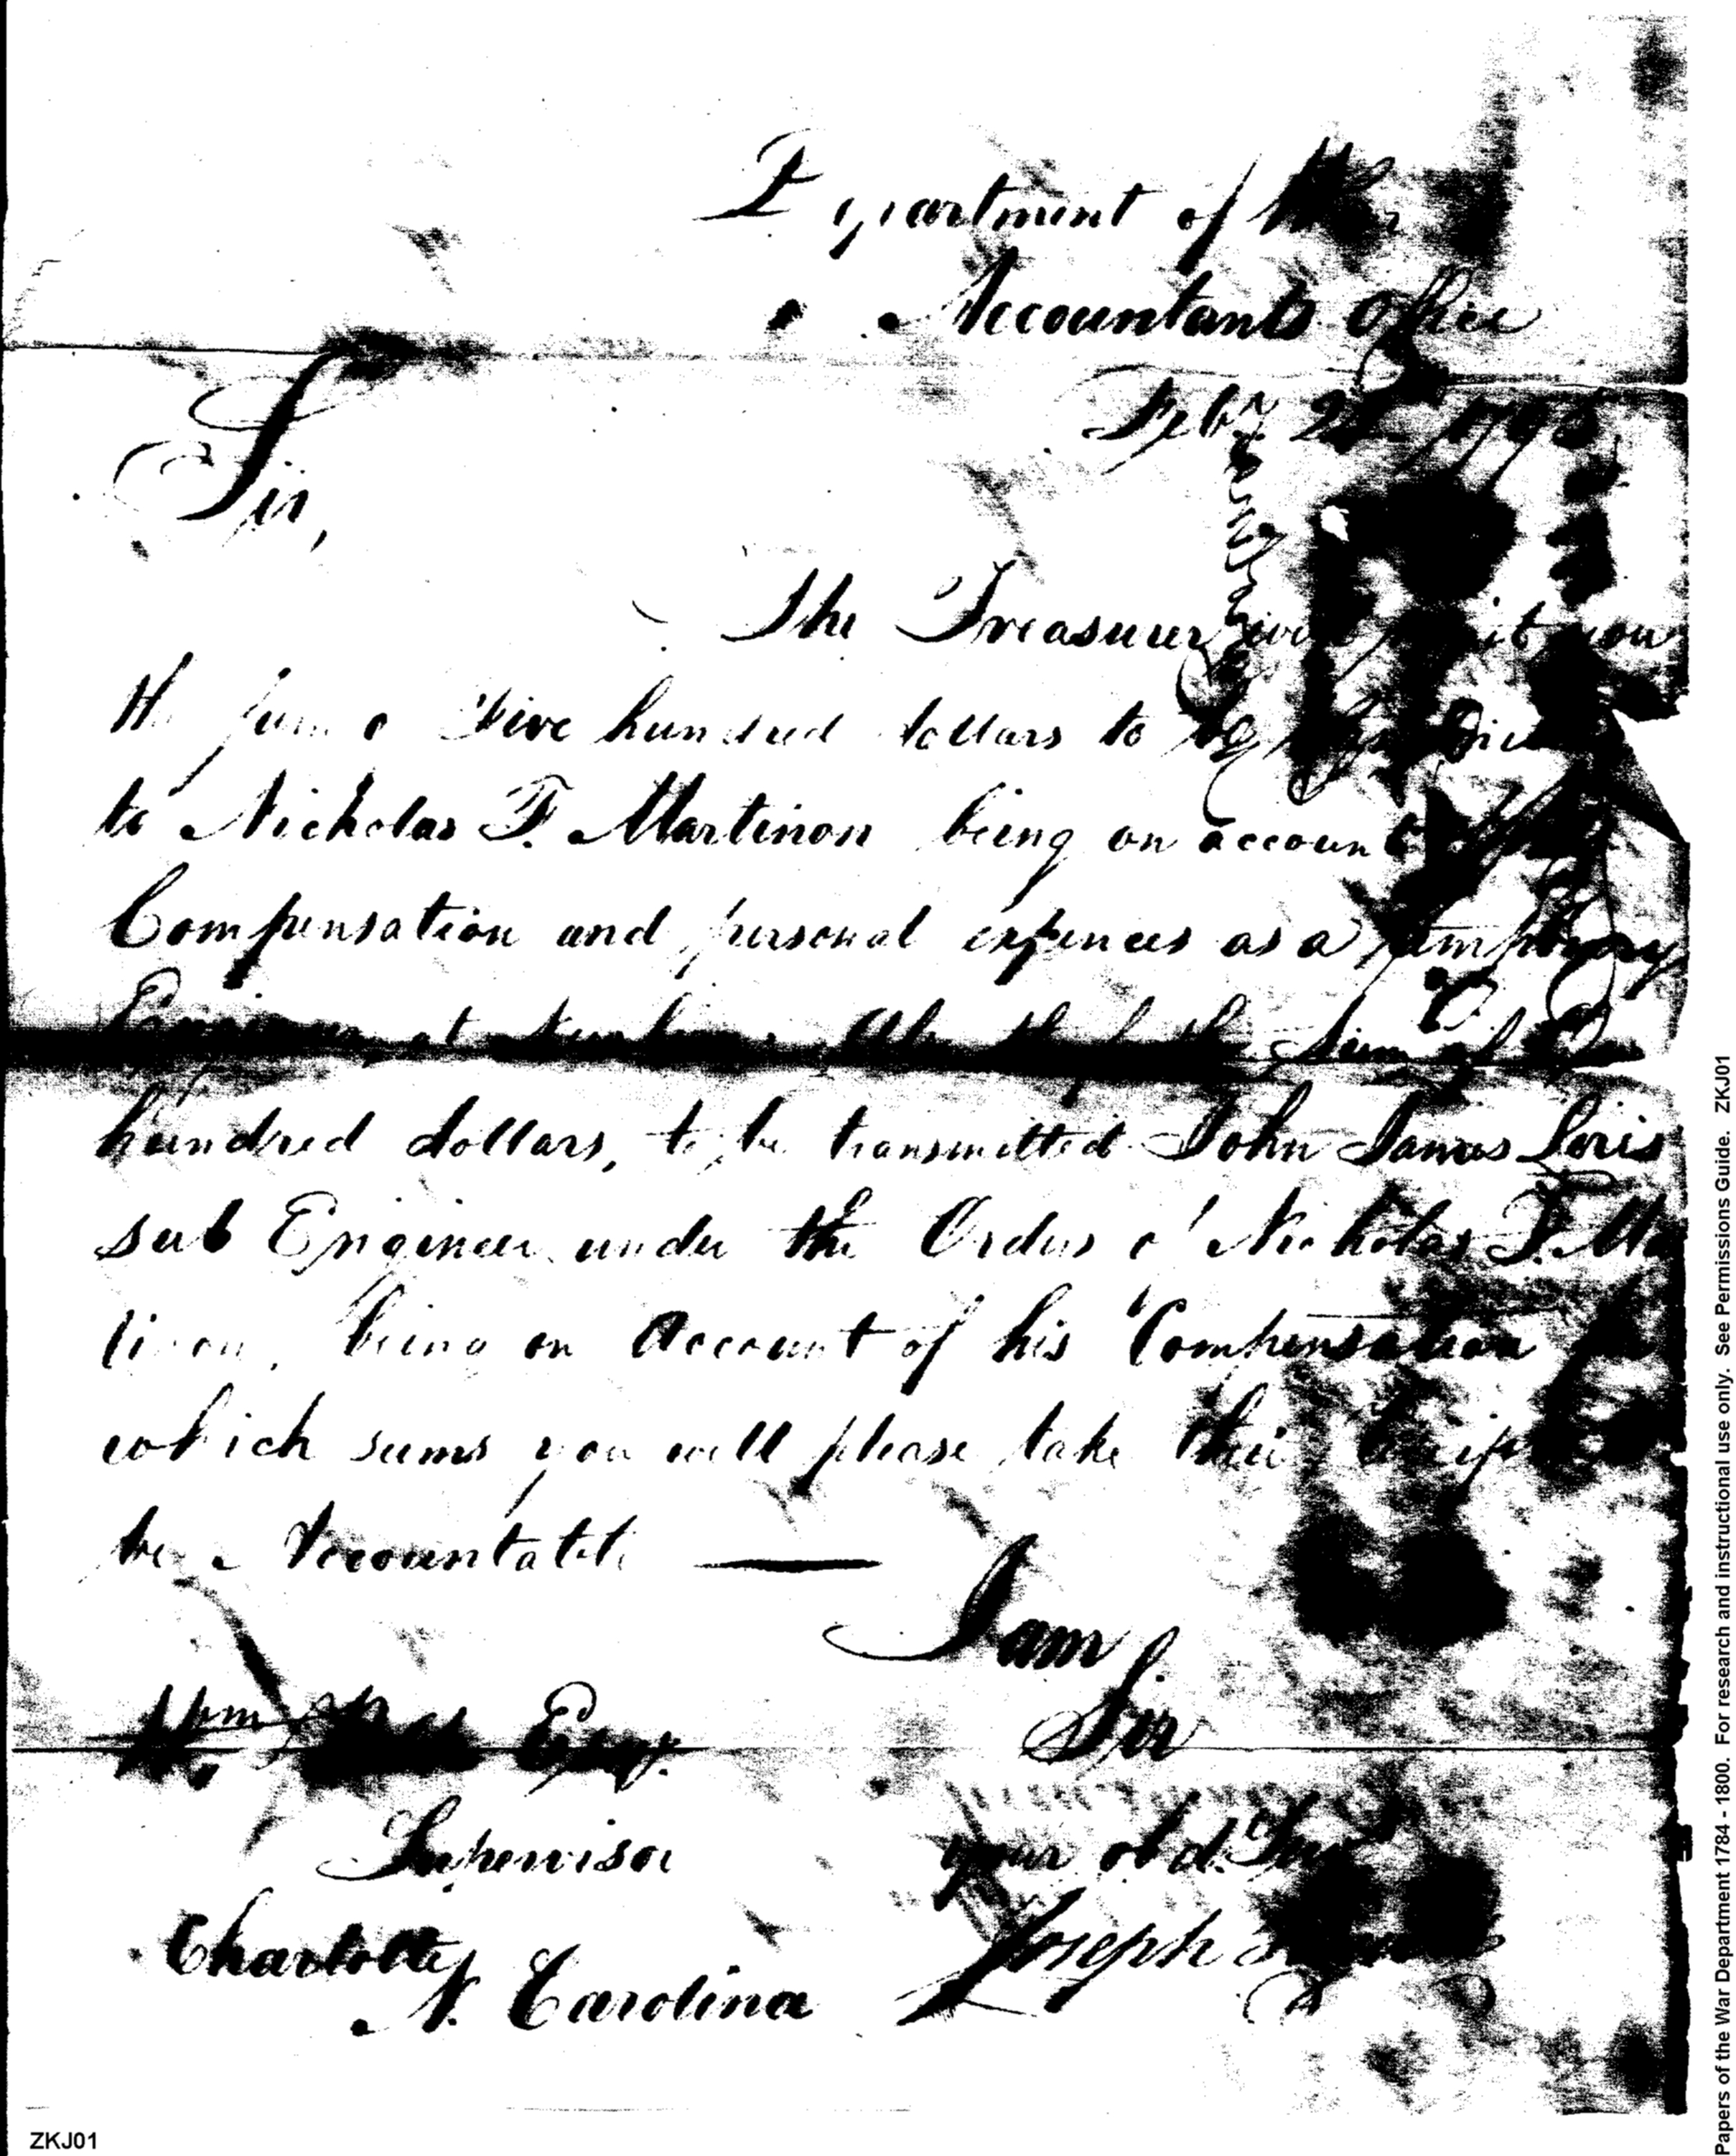 Department of War
Accountants Office
Feby 1795
Sir,
The Treasurer will you
the sum of Five hundred dollars to be
to Nicholas F. Martinon being on account
Compensation and personal expences as a temporary
Engineer, at Also the further sum of
hundred dollars, to be transmitted John James
sub Engineer under the Orders of Nicholas F. Mar
tinon, being on Account of his Compensation for
which sums you will please take their
be Accountable
I am
Sir
Wm Esqr.
Supervisor
your obd. Servt
Charlotte
Joseph
N. Carolina
ZKJ01
Papers of the War Department 1784 - 1800. For research and instructional use only. See Permissions Guide. ZKJ01